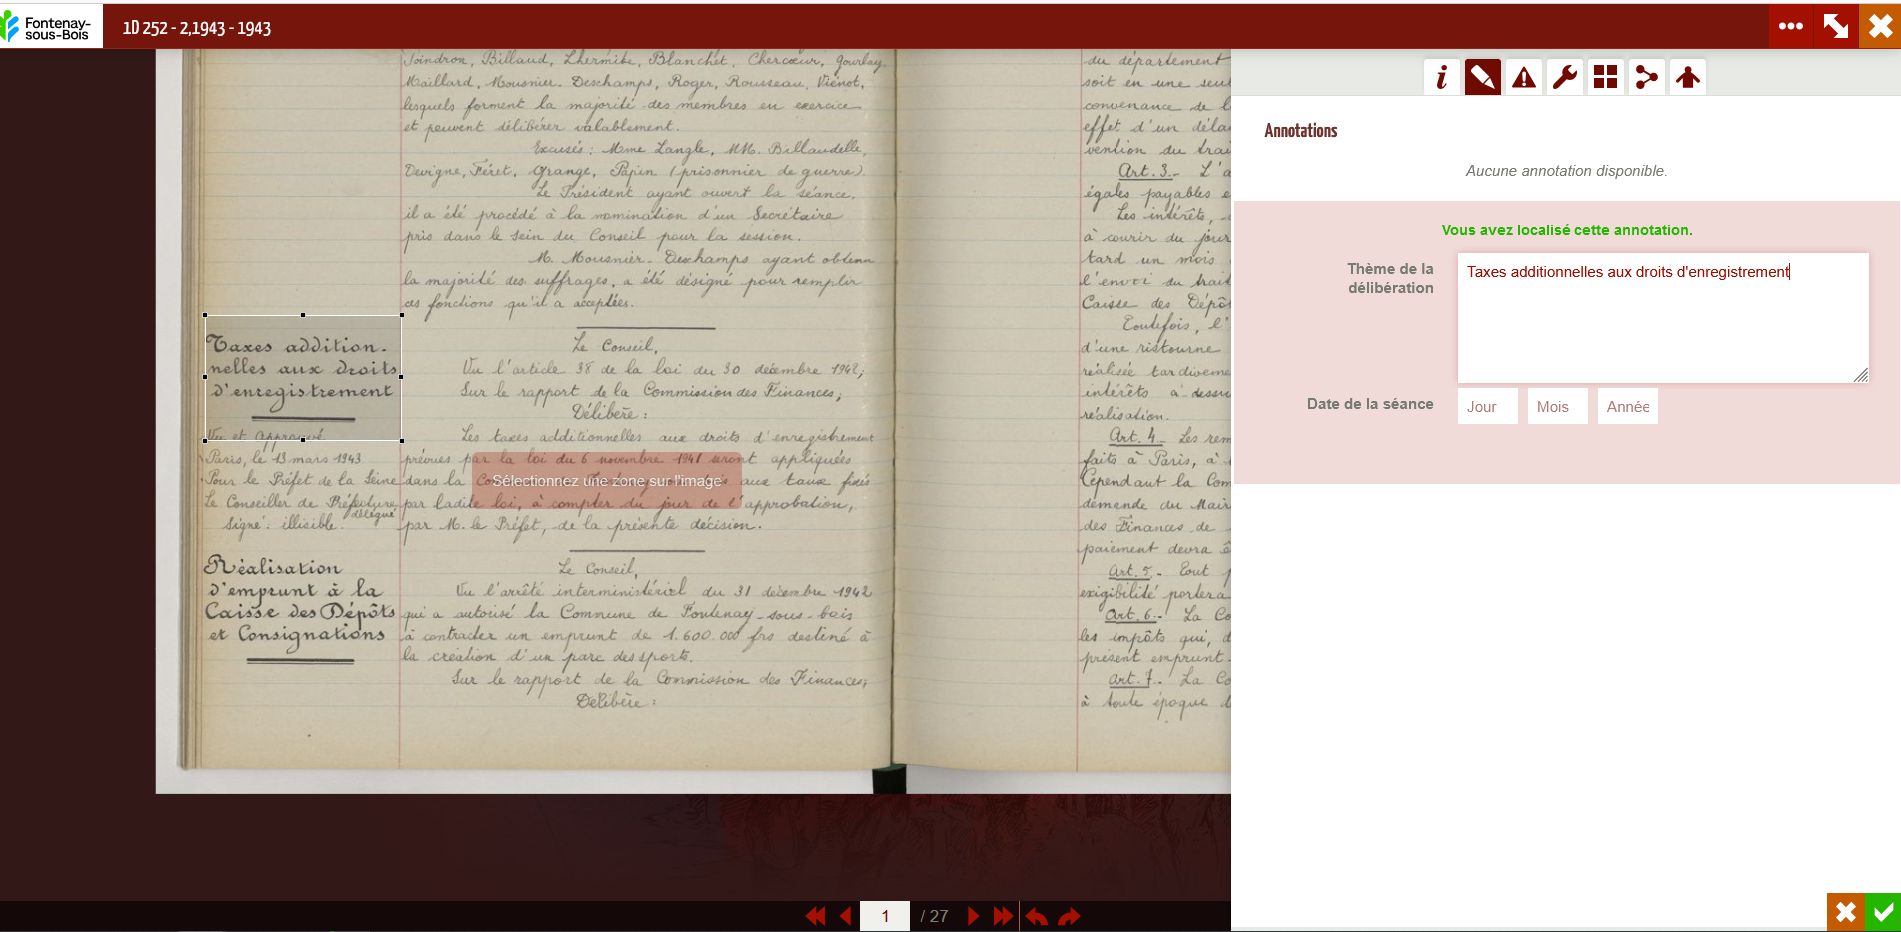 Fontenay-
sous-Bois
1D 252 - 2,1943 - 1943
Joindron, Billaud, Lhermite, Blanchet, Chercœur, Gourlay,
Maillard, Mousnier-Deschamps, Roger, Rousseau, Viénot,
lesquels forment la majorité des membres en exercice
et peuvent délibérer valablement.
Excusés : Mme Langle, MM. Billaudelle,
Devigne, Féret, Grange, Papin (prisonnier de guerre)
Le Président ayant ouvert la séance,
il a été procédé à la nomination d'un Secrétaire
pris dans le sein du Conseil pour la session.
M. Mousnier-Deschamps ayant obtenu
la majorité des suffrages, a été désigné pour remplir
ces fonctions qu'il a acceptées.
Taxes addition-
nelles aux droits
d'enregistrement
Vu et approuvé
Paris, le 13 mars 1943
Pour le Préfet de la Seine
Le Conseiller de Préfecture
délégué
signé : illisible.
Le Conseil,
Vu l'article 38 de la loi du 30 décembre 1942;
Sur le rapport de la Commission des Finances;
Délibère :
Les taxes additionnelles aux droits d'enregistrement
prévues par la loi du 6 novembre 1941 seront appliquées
dans la aux taux fixés
par ladite loi, à compter du jour de l'approbation,
par M. le Préfet, de la présente décision.
Sélectionnez une zone sur l'image
Réalisation
d'emprunt à la
Caisse des Dépôts
et Consignations
Le Conseil,
Vu l'arrêté interministériel du 31 décembre 1942
qui a autorisé la Commune de Fontenay-sous-bois
à contracter un emprunt de 1.600.000 frs destiné à
la création d'un parc des sports.
Sur le rapport de la Commission des Finances;
Délibère :
du département
soit en une seul
convenance de l
effet d'un déla
vention du trai
Art. 3.- L'a
égales payables e
Les intérêts,
à courir du jour
tard un mois
l'envoi du trait
Caisse des Dépô
Toutefois, l'
d'une ristourne
réalisée tardiveme
intérêts à dessu
réalisation.
Art. 4.- Les rem
faits à Paris, à
Cependant la Com
demande du Mair
des Finances de
paiement devra ê
Art. 5.- Tout
exigibilité portera
Art. 6.- La Co
les impôts qui, d
présent emprunt
Art. 7.- La Co
à toute époque d
1 / 27
Annotations
Aucune annotation disponible.
Vous avez localisé cette annotation.
Thème de la
délibération
Taxes additionnelles aux droits d'enregistrement
Date de la séance
Jour Mois Année